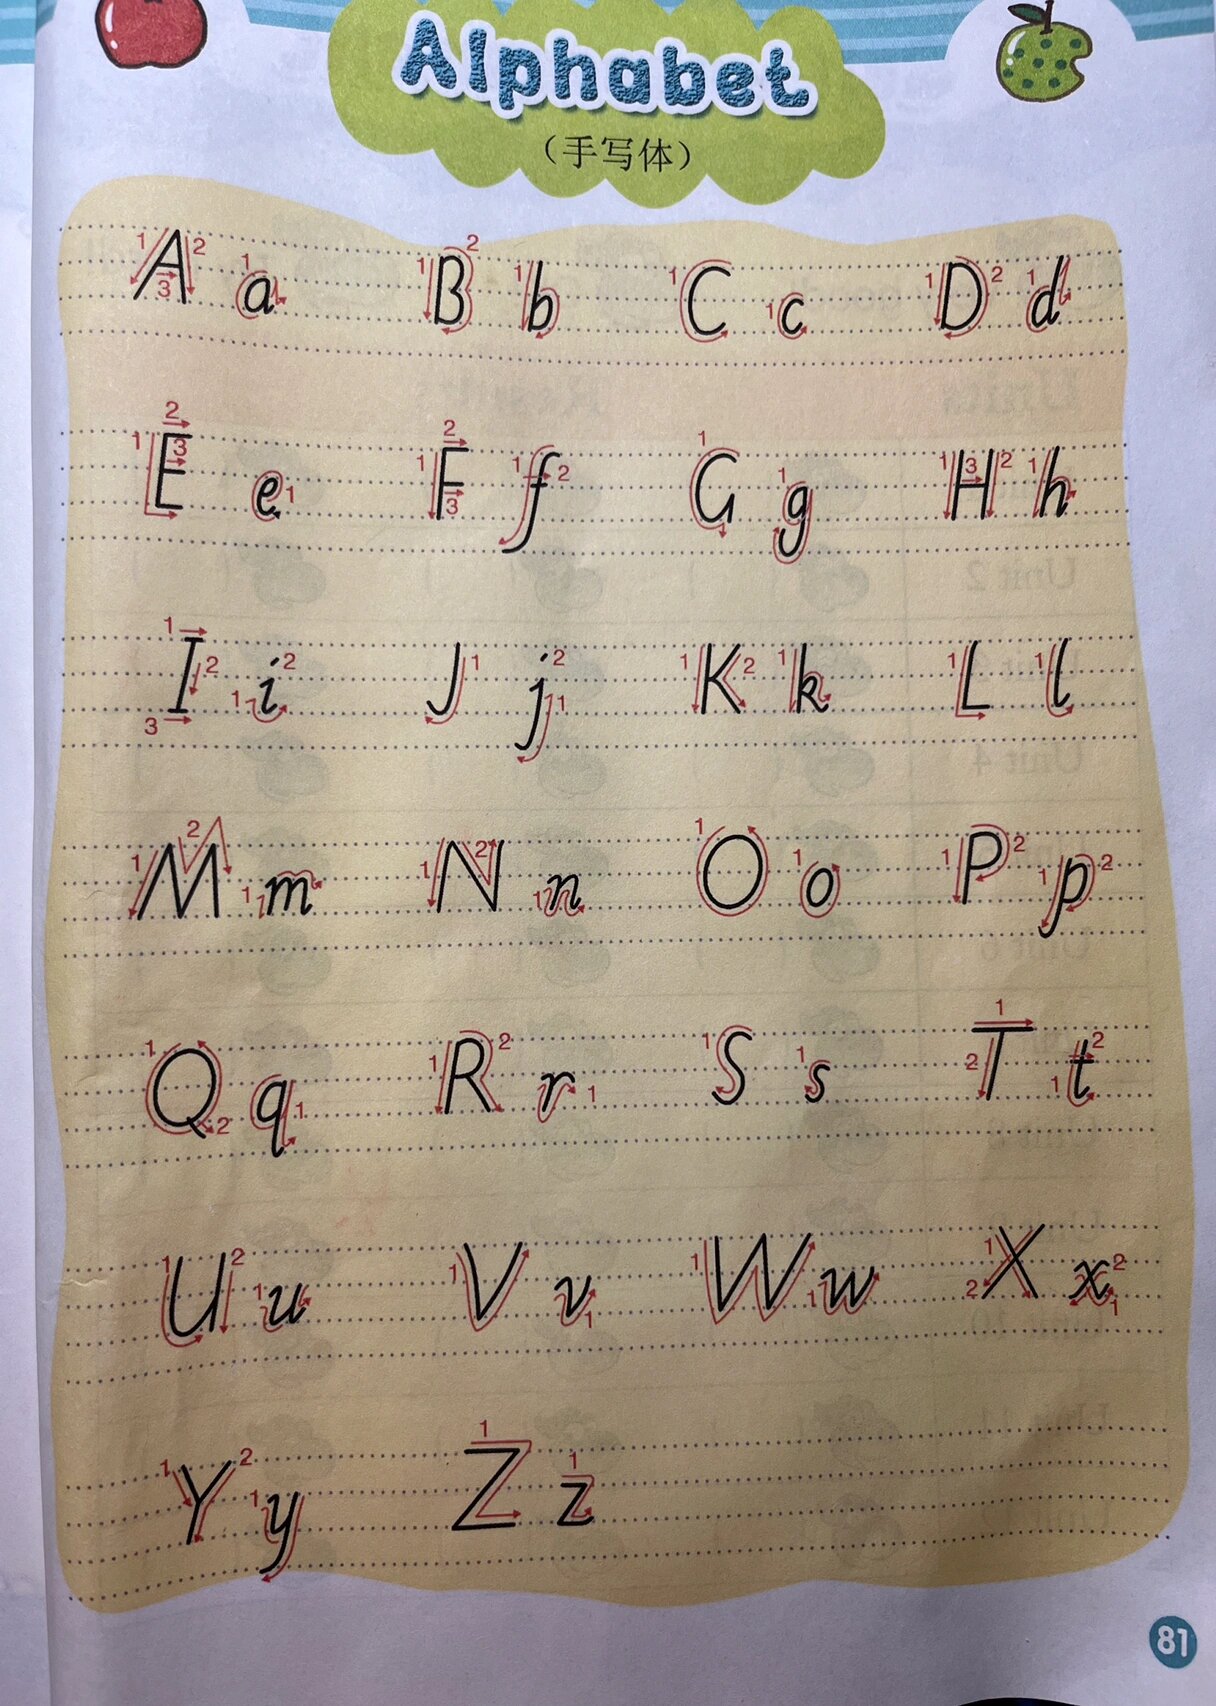 Alphabet
（手写体）
A a B b C c D d
E e F f G g H h
I i J j K k L l
M m N n O o P p
Q q R r S s T t
U u V v W w X x
Y y Z z
81